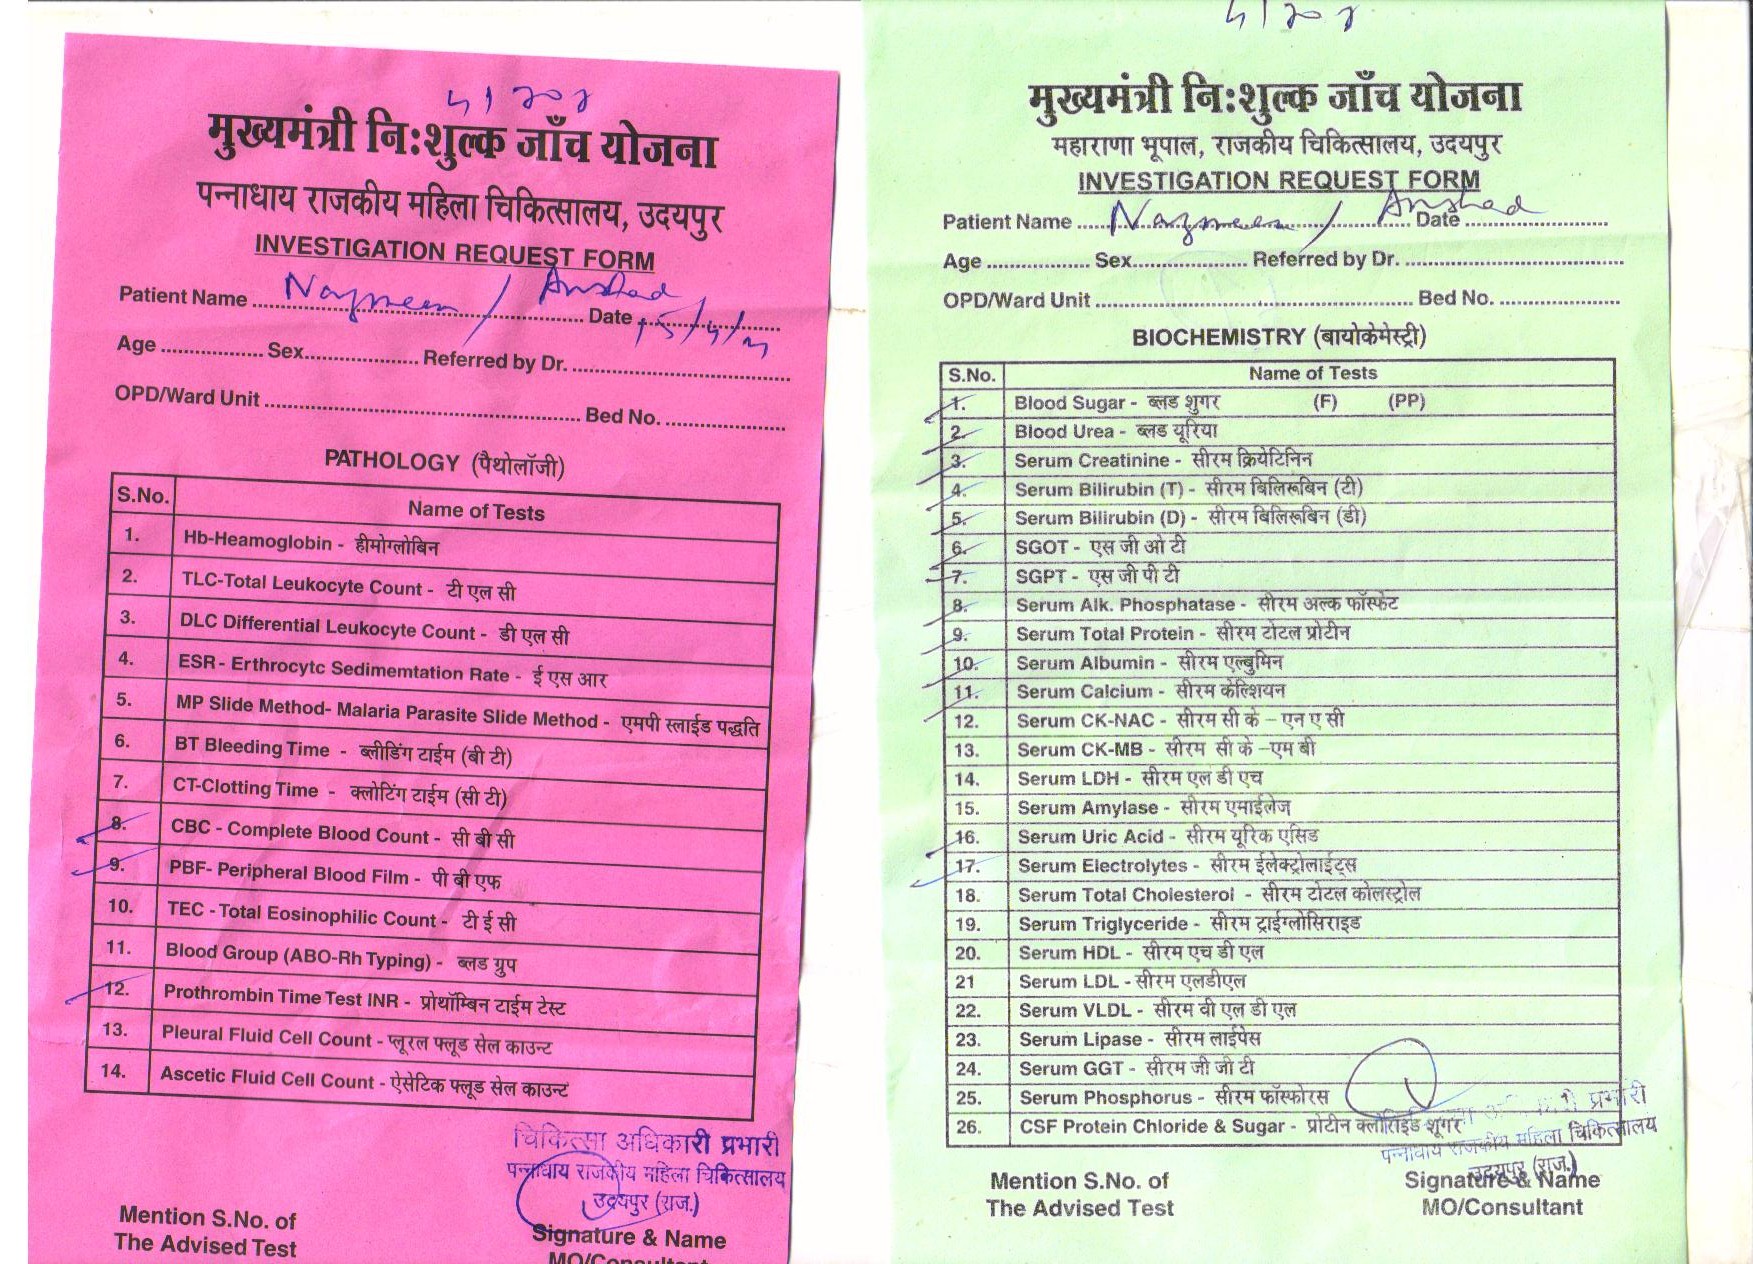 मुख्यमंत्री नि:शुल्क जाँच योजना
पन्नाधाय राजकीय महिला चिकित्सालय, उदयपुर
INVESTIGATION REQUEST FORM
Patient Name Nazmeen / Arshad Date 15/4/
Age Sex Referred by Dr.
OPD/Ward Unit Bed No.
PATHOLOGY (पैथोलॉजी)
S.No. Name of Tests
1. Hb-Heamoglobin - हीमोग्लोबिन
2. TLC-Total Leukocyte Count - टी एल सी
3. DLC Differential Leukocyte Count - डी एल सी
4. ESR - Erthrocytc Sedimemtation Rate - ई एस आर
5. MP Slide Method- Malaria Parasite Slide Method - एमपी स्लाईड पद्धति
6. BT Bleeding Time - ब्लीडिंग टाईम (बी टी)
7. CT-Clotting Time - क्लोटिंग टाईम (सी टी)
8. CBC - Complete Blood Count - सी बी सी
9. PBF- Peripheral Blood Film - पी बी एफ
10. TEC - Total Eosinophilic Count - टी ई सी
11. Blood Group (ABO-Rh Typing) - ब्लड ग्रुप
12. Prothrombin Time Test INR - प्रोथॉम्बिन टाईम टेस्ट
13. Pleural Fluid Cell Count - प्लूरल फ्लूड सेल काउन्ट
14. Ascetic Fluid Cell Count - ऐसेटिक फ्लूड सेल काउन्ट
चिकित्सा अधिकारी प्रभारी
पन्नाधाय राजकीय महिला चिकित्सालय
उदयपुर (राज.)
Mention S.No. of
The Advised Test
Signature & Name
MO/Consultant
मुख्यमंत्री नि:शुल्क जाँच योजना
महाराणा भूपाल, राजकीय चिकित्सालय, उदयपुर
INVESTIGATION REQUEST FORM
Patient Name Nazmeen / Arshad Date
Age Sex Referred by Dr.
OPD/Ward Unit Bed No.
BIOCHEMISTRY (बायोकेमेस्ट्री)
S.No. Name of Tests
1. Blood Sugar - ब्लड शुगर (F) (PP)
2. Blood Urea - ब्लड यूरिया
3. Serum Creatinine - सीरम क्रियेटिनिन
4. Serum Bilirubin (T) - सीरम बिलिरूबिन (टी)
5. Serum Bilirubin (D) - सीरम बिलिरूबिन (डी)
6. SGOT - एस जी ओ टी
7. SGPT - एस जी पी टी
8. Serum Alk. Phosphatase - सीरम अल्क फॉस्फेट
9. Serum Total Protein - सीरम टोटल प्रोटीन
10. Serum Albumin - सीरम एल्बुमिन
11. Serum Calcium - सीरम केल्शियन
12. Serum CK-NAC - सीरम सी के – एन ए सी
13. Serum CK-MB - सीरम सी के –एम बी
14. Serum LDH - सीरम एल डी एच
15. Serum Amylase - सीरम एमाईलेज
16. Serum Uric Acid - सीरम यूरिक एसिड
17. Serum Electrolytes - सीरम ईलेक्ट्रोलाईट्स
18. Serum Total Cholesterol - सीरम टोटल कोलस्ट्रोल
19. Serum Triglyceride - सीरम ट्राईग्लोसिराइड
20. Serum HDL - सीरम एच डी एल
21 Serum LDL - सीरम एलडीएल
22. Serum VLDL - सीरम वी एल डी एल
23. Serum Lipase - सीरम लाईपेस
24. Serum GGT - सीरम जी जी टी
25. Serum Phosphorus - सीरम फॉस्फोरस
26. CSF Protein Chloride & Sugar - प्रोटीन क्लोराईड शूगर
प्रभारी
पन्नाधाय राजकीय महिला चिकित्सालय
उदयपुर (राज.)
Mention S.No. of
The Advised Test
Signature & Name
MO/Consultant